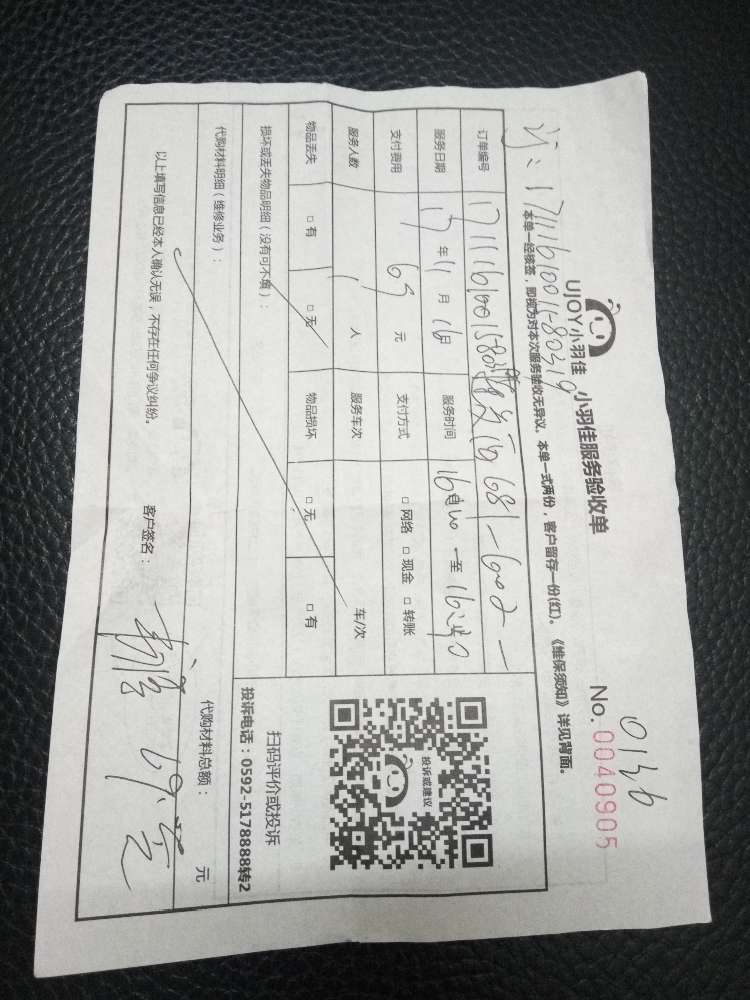 UJOY小羽佳 小羽佳服务验收单
0136
No. 0040905
订：1711161001-80319
本单一经核签，即视为对本次服务验收无异议。本单一式两份，客户留存一份(红)。《维保须知》详见背面。
订单编号 681-602
服务日期 17年11月16日 服务时间 至
支付费用 元 支付方式 □网络 □现金 □转账
服务人数 1人 服务车次 车/次
物品丢失 □有 □无 物品损坏 □无 □有
损坏或丢失物品明细（没有可不填）：
代购材料明细（维修业务）：
代购材料总额： 元
以上填写信息已经本人确认无误，不存在任何争议纠纷。
客户签名：
投诉或建议
扫码评价或投诉
投诉电话：0592-5178888转2